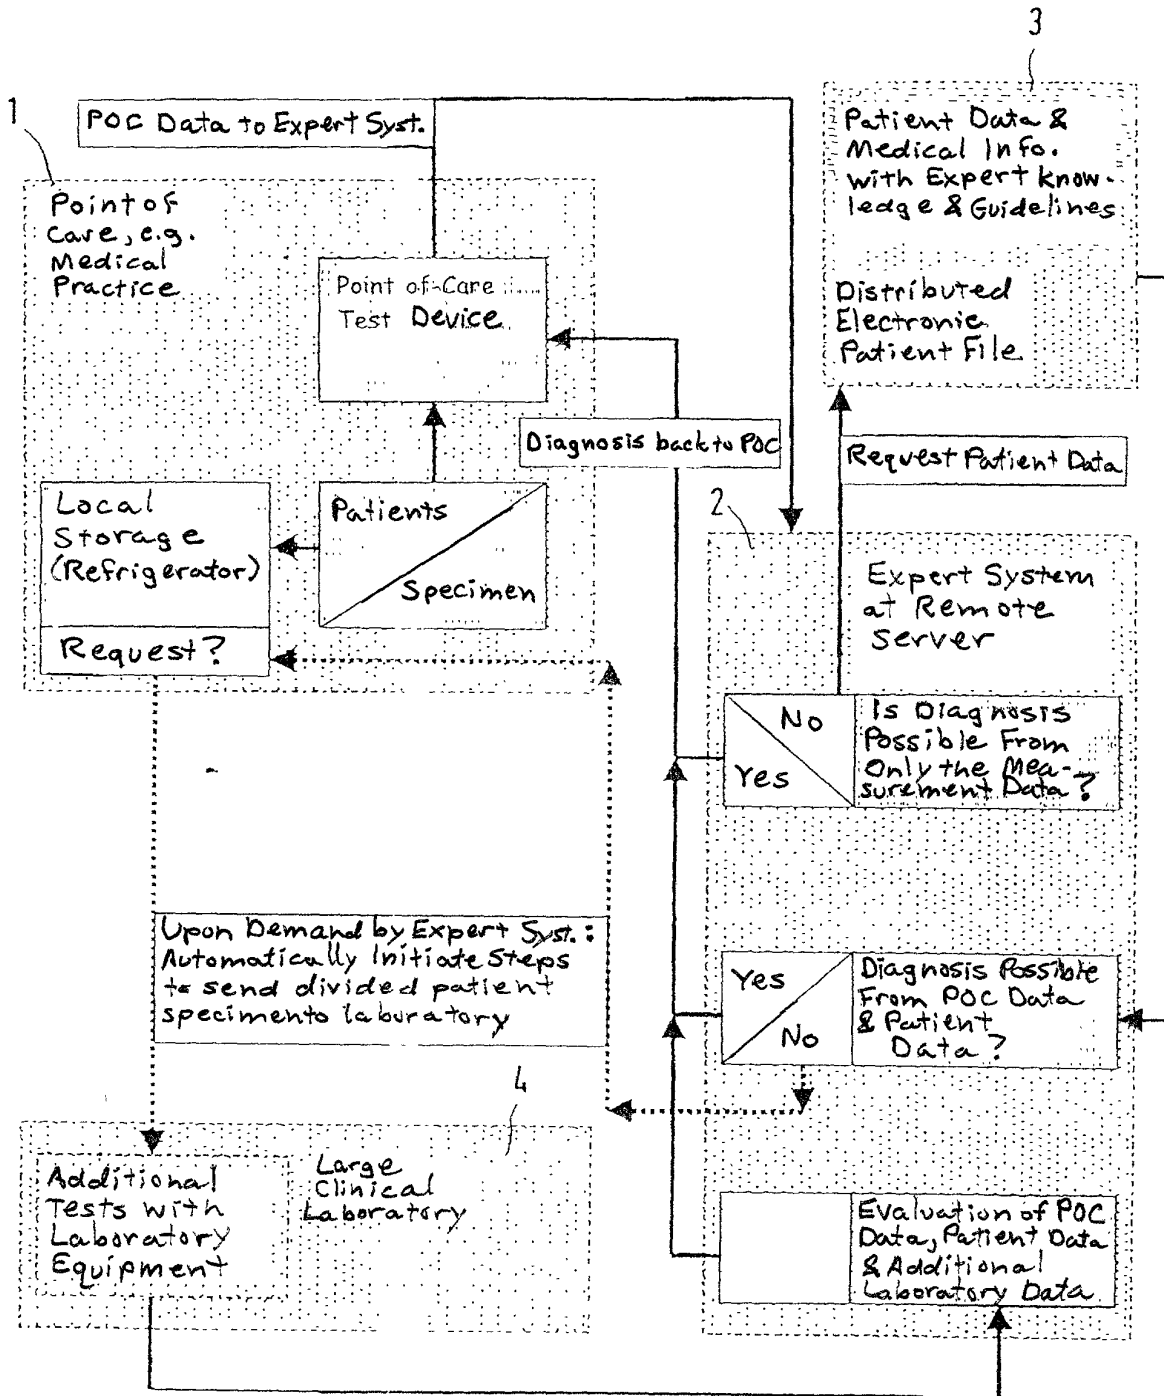 3
1
POC Data to Expert Syst.
Patient Data &
Medical Info.
with Expert know-
ledge & Guidelines
Distributed
Electronic
Patient File
Point of
Care, e.g.
Medical
Practice
Point of-Care
Test Device
Diagnosis back to POC
Request Patient Data
Local
Storage
(Refrigerator)
Request?
Patients
Specimen
2
Expert System
at Remote
Server
No
Yes
Is Diagnosis
Possible From
Only the Mea-
surement Data?
Upon Demand by Expert Syst.:
Automatically Initiate Steps
to send divided patient
specimento laburatory
Yes
No
Diagnosis Possible
From POC Data
& Patient
Data?
4
Additional
Tests with
Laboratory
Equipment
Large
Clinical
Laboratory
Evaluation of POC
Data, Patient Data
& Additional
Laboratory Data